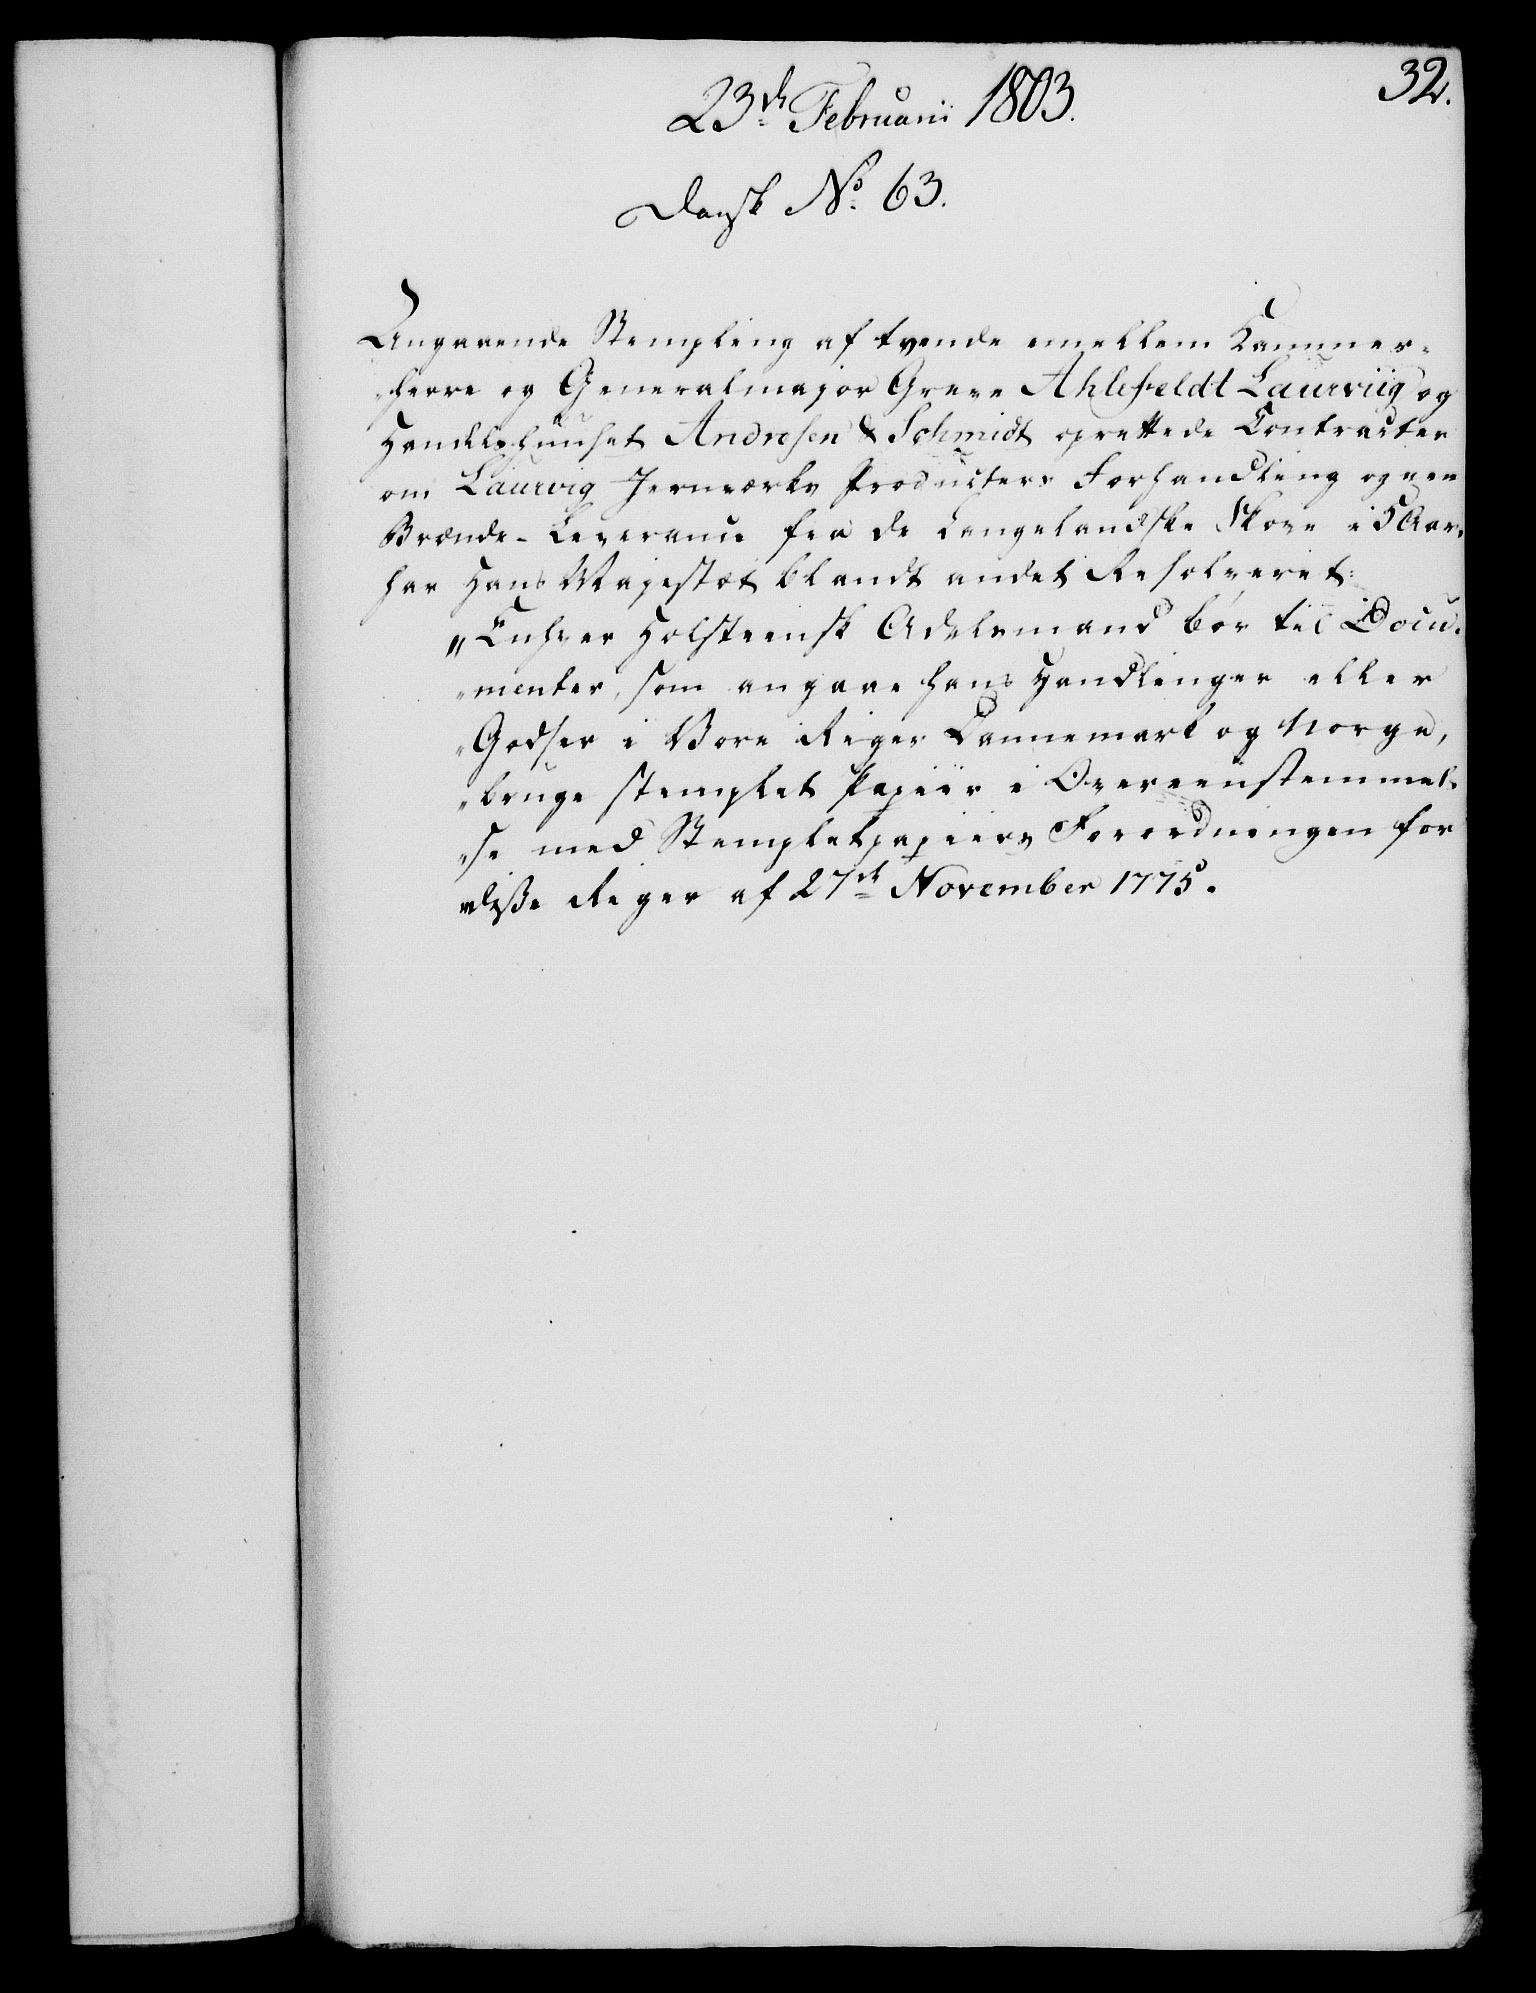 32.
23de Februarii 1803.
Dansk No. 63.
Angaaende Stempling af tvende emellem Kammer-
"herre og Generalmajor Greve Ahlefeldt Laurviig og
Handelshuuset Andresen & Schmidt oprettede Contracter
om Laurvig Jernværks Producters Forhandling og een
Brænde-Leverance fra de Langelandske Skove i 5 Aar.
har Hans Majestæt blandt andet Resolveret:
"Enhver Holsteensk Adelsmand bør til Docu-
"menter, som angaae hans Handlinger eller
"Godser i Vore Riger Dannemark og Norge,
"bruge stemplet Papiir i Overeensstemmel-
"se med Stempletpapiirs Forordningen for
"disse Riger af 27de November 1775.